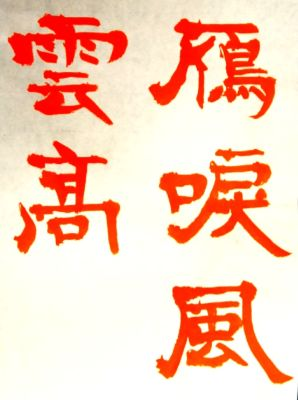 鴈唳風
雲高